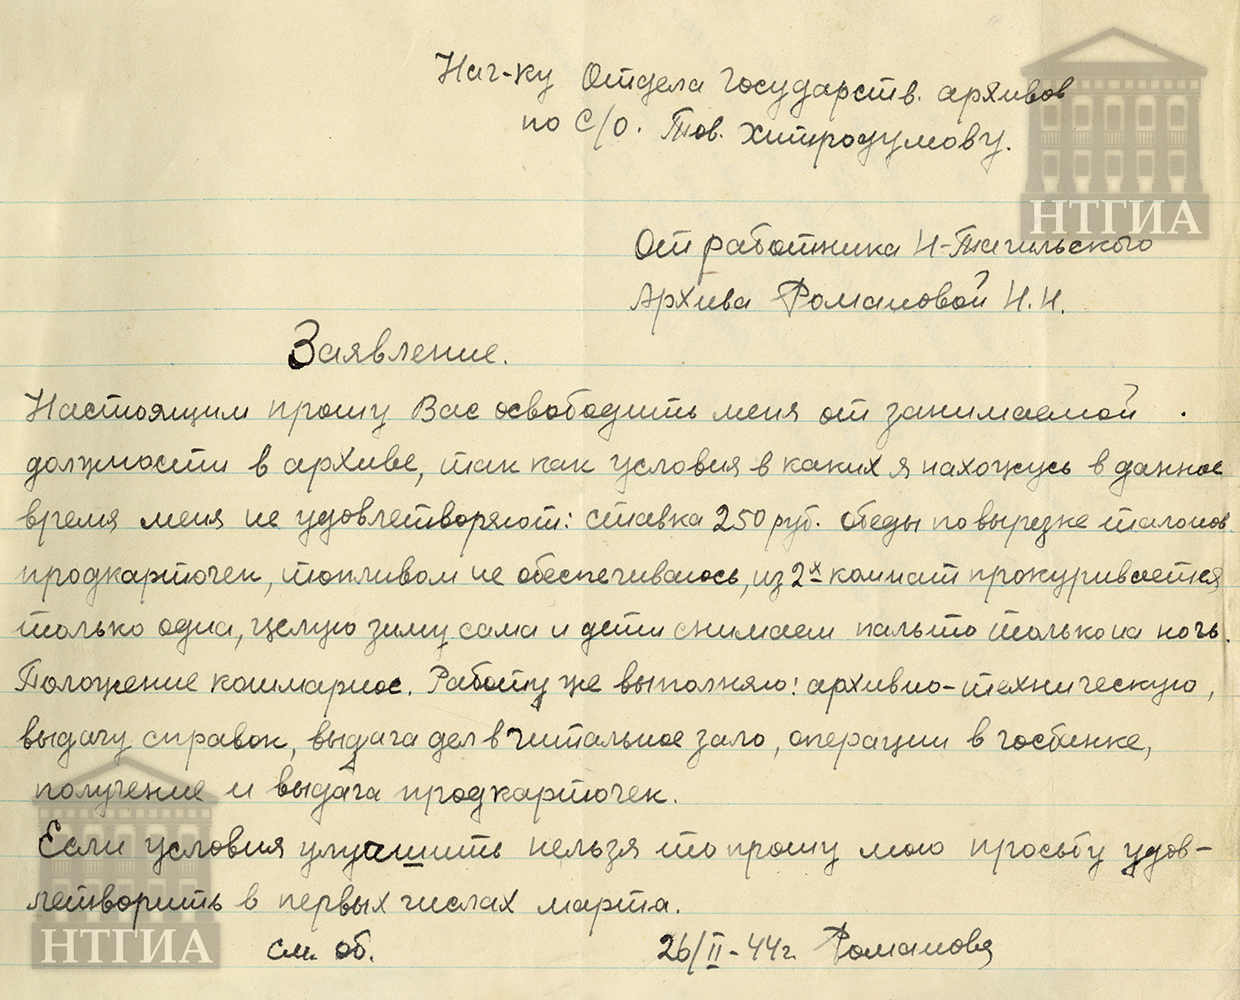 Нач-ку Отдела Государств. архивов
по С/О. Тов. Хитродумову.
НТГИА
От работника Н-Тагильского
Архива Романовой Н.Н.
Заявление.
Настоящим прошу Вас освободить меня от занимаемой
должности в архиве, так как условия в каких я нахожусь в данное
время меня не удовлетворяют: ставка 250 руб. обеды по вырезке талонов
продкарточек, топливом не обеспечиваюсь, из 2х комнат прокуривается
только одна, целую зиму сама и дети снимаем пальто только на ночь.
Положение кошмарное. Работу же выполняю: архивно-техническую,
выдачу справок, выдача дел в читальное зало, операции в госбанке,
получение и выдача продкарточек.
Если условия улучшить нельзя то прошу мою просьбу удов-
летворить в первых числах марта.
см. об. 26/II-44г. Романова
НТГИА